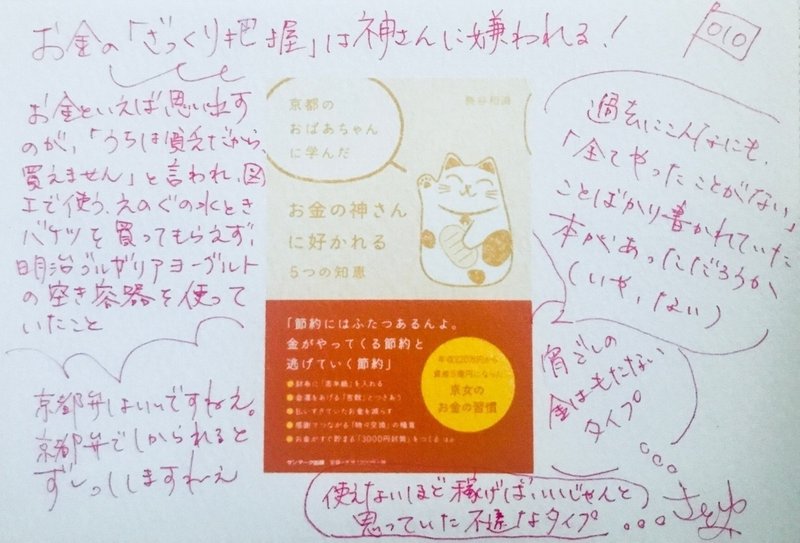 お金の「ざっくり把握」は神さんに嫌われる!
010
お金といえば思い出す
のが、「うちは貧乏だから
買えません」と言われ、図
工で使う、えのぐの水とき
バケツを買ってもらえず、
明治ブルガリアヨーグルト
の空き容器を使って
いたこと
京都弁はいいですねえ。
京都弁でしかられると
ずしっとしますねえ
京都の
おばあちゃん
に学んだ
長谷和由
お金の神さん
に好かれる
5つの知恵
「節約にはふたつあるんよ。
金がやってくる節約と
逃げていく節約」
年収220万円から
資産5億円になった
京女の
お金の習慣
財布に「百年紙」を入れる
金運をあげる「苦数」とつきあう
払いすぎていたお金を減らす
感謝でつながる「物々交換」の極意
お金がすぐ貯まる「3000円封筒」をつくる ほか
サンマーク出版
過去にこんなにも、
「全てやったことがない」
ことばかり書かれていた
本があっただろうか
(いや、ない)
宵ごしの
金はもたない
タイプ
使えないほど稼げばいいじゃんと
思っていた不遜なタイプ